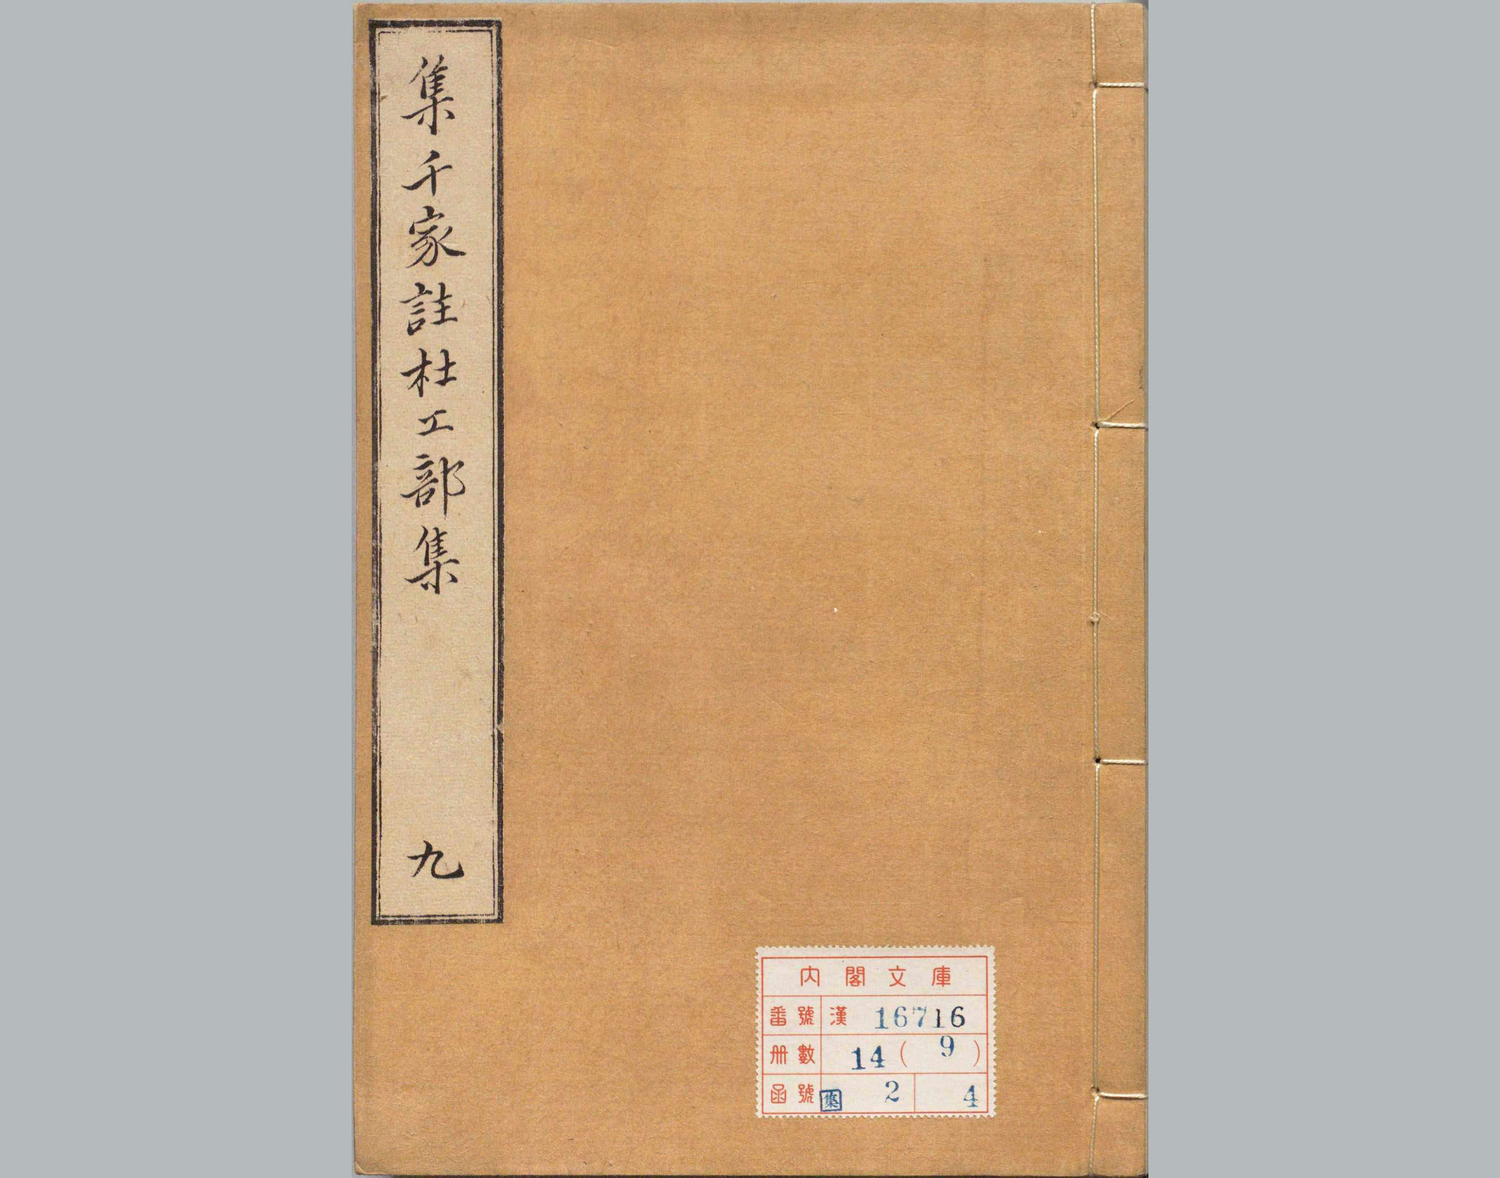 集千家註杜工部集
九
内閣文庫
番號 漢 16716
册數 14(9)
函號 集 2 4